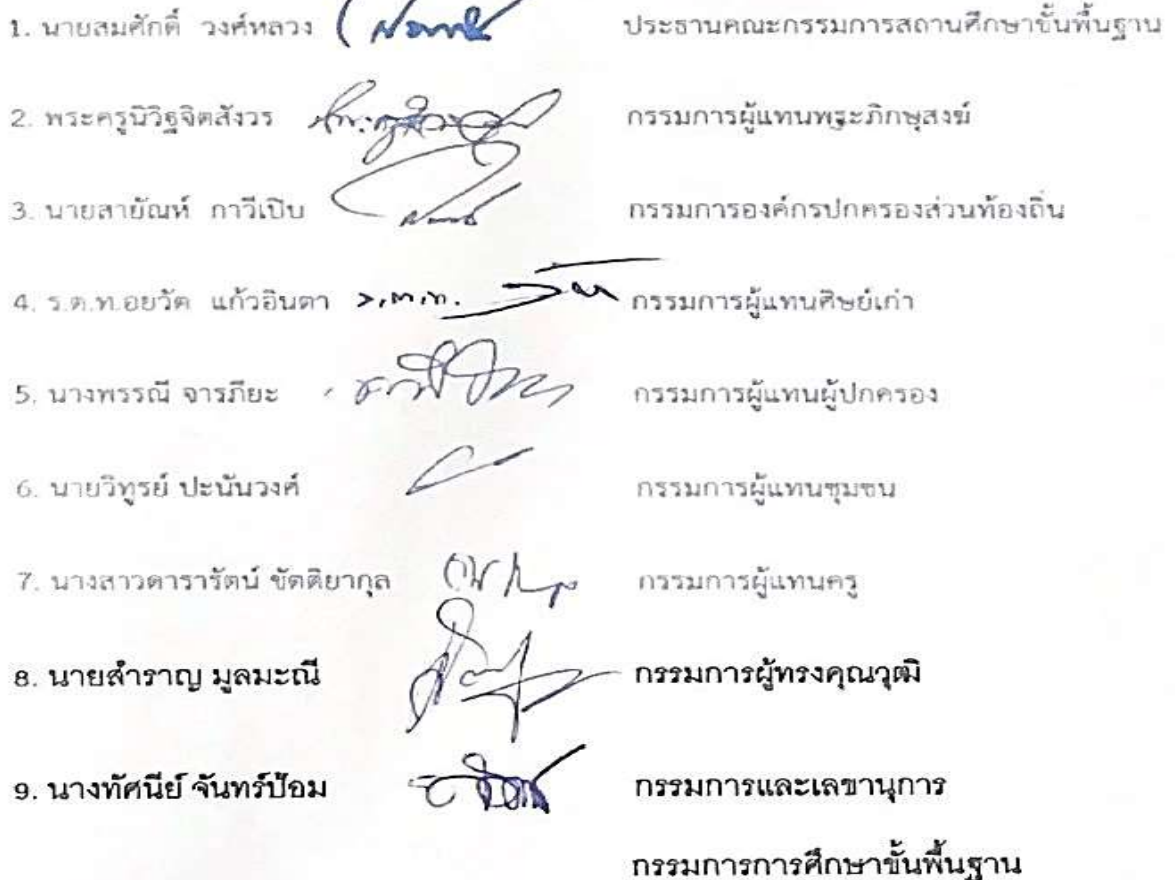 1. นายสมศักดิ์ วงศ์หลวง ประธานคณะกรรมการสถานศึกษาขั้นพื้นฐาน
2. พระครูนิวิฐจิตสังวร กรรมการผู้แทนพระภิกษุสงฆ์
3. นายสายัณห์ กาวีเปิบ กรรมการองค์กรปกครองส่วนท้องถิ่น
4. ร.ต.ท.อยวัต แก้วอินตา ร.ต.ท. กรรมการผู้แทนศิษย์เก่า
5. นางพรรณี จารภียะ กรรมการผู้แทนผู้ปกครอง
6. นายวิทูรย์ ปะนันวงศ์ กรรมการผู้แทนชุมชน
7. นางสาวดารารัตน์ ขัตติยากุล กรรมการผู้แทนครู
8. นายสำราญ มูลมะณี กรรมการผู้ทรงคุณวุฒิ
9. นางทัศนีย์ จันทร์ป้อม กรรมการและเลขานุการ
กรรมการการศึกษาขั้นพื้นฐาน